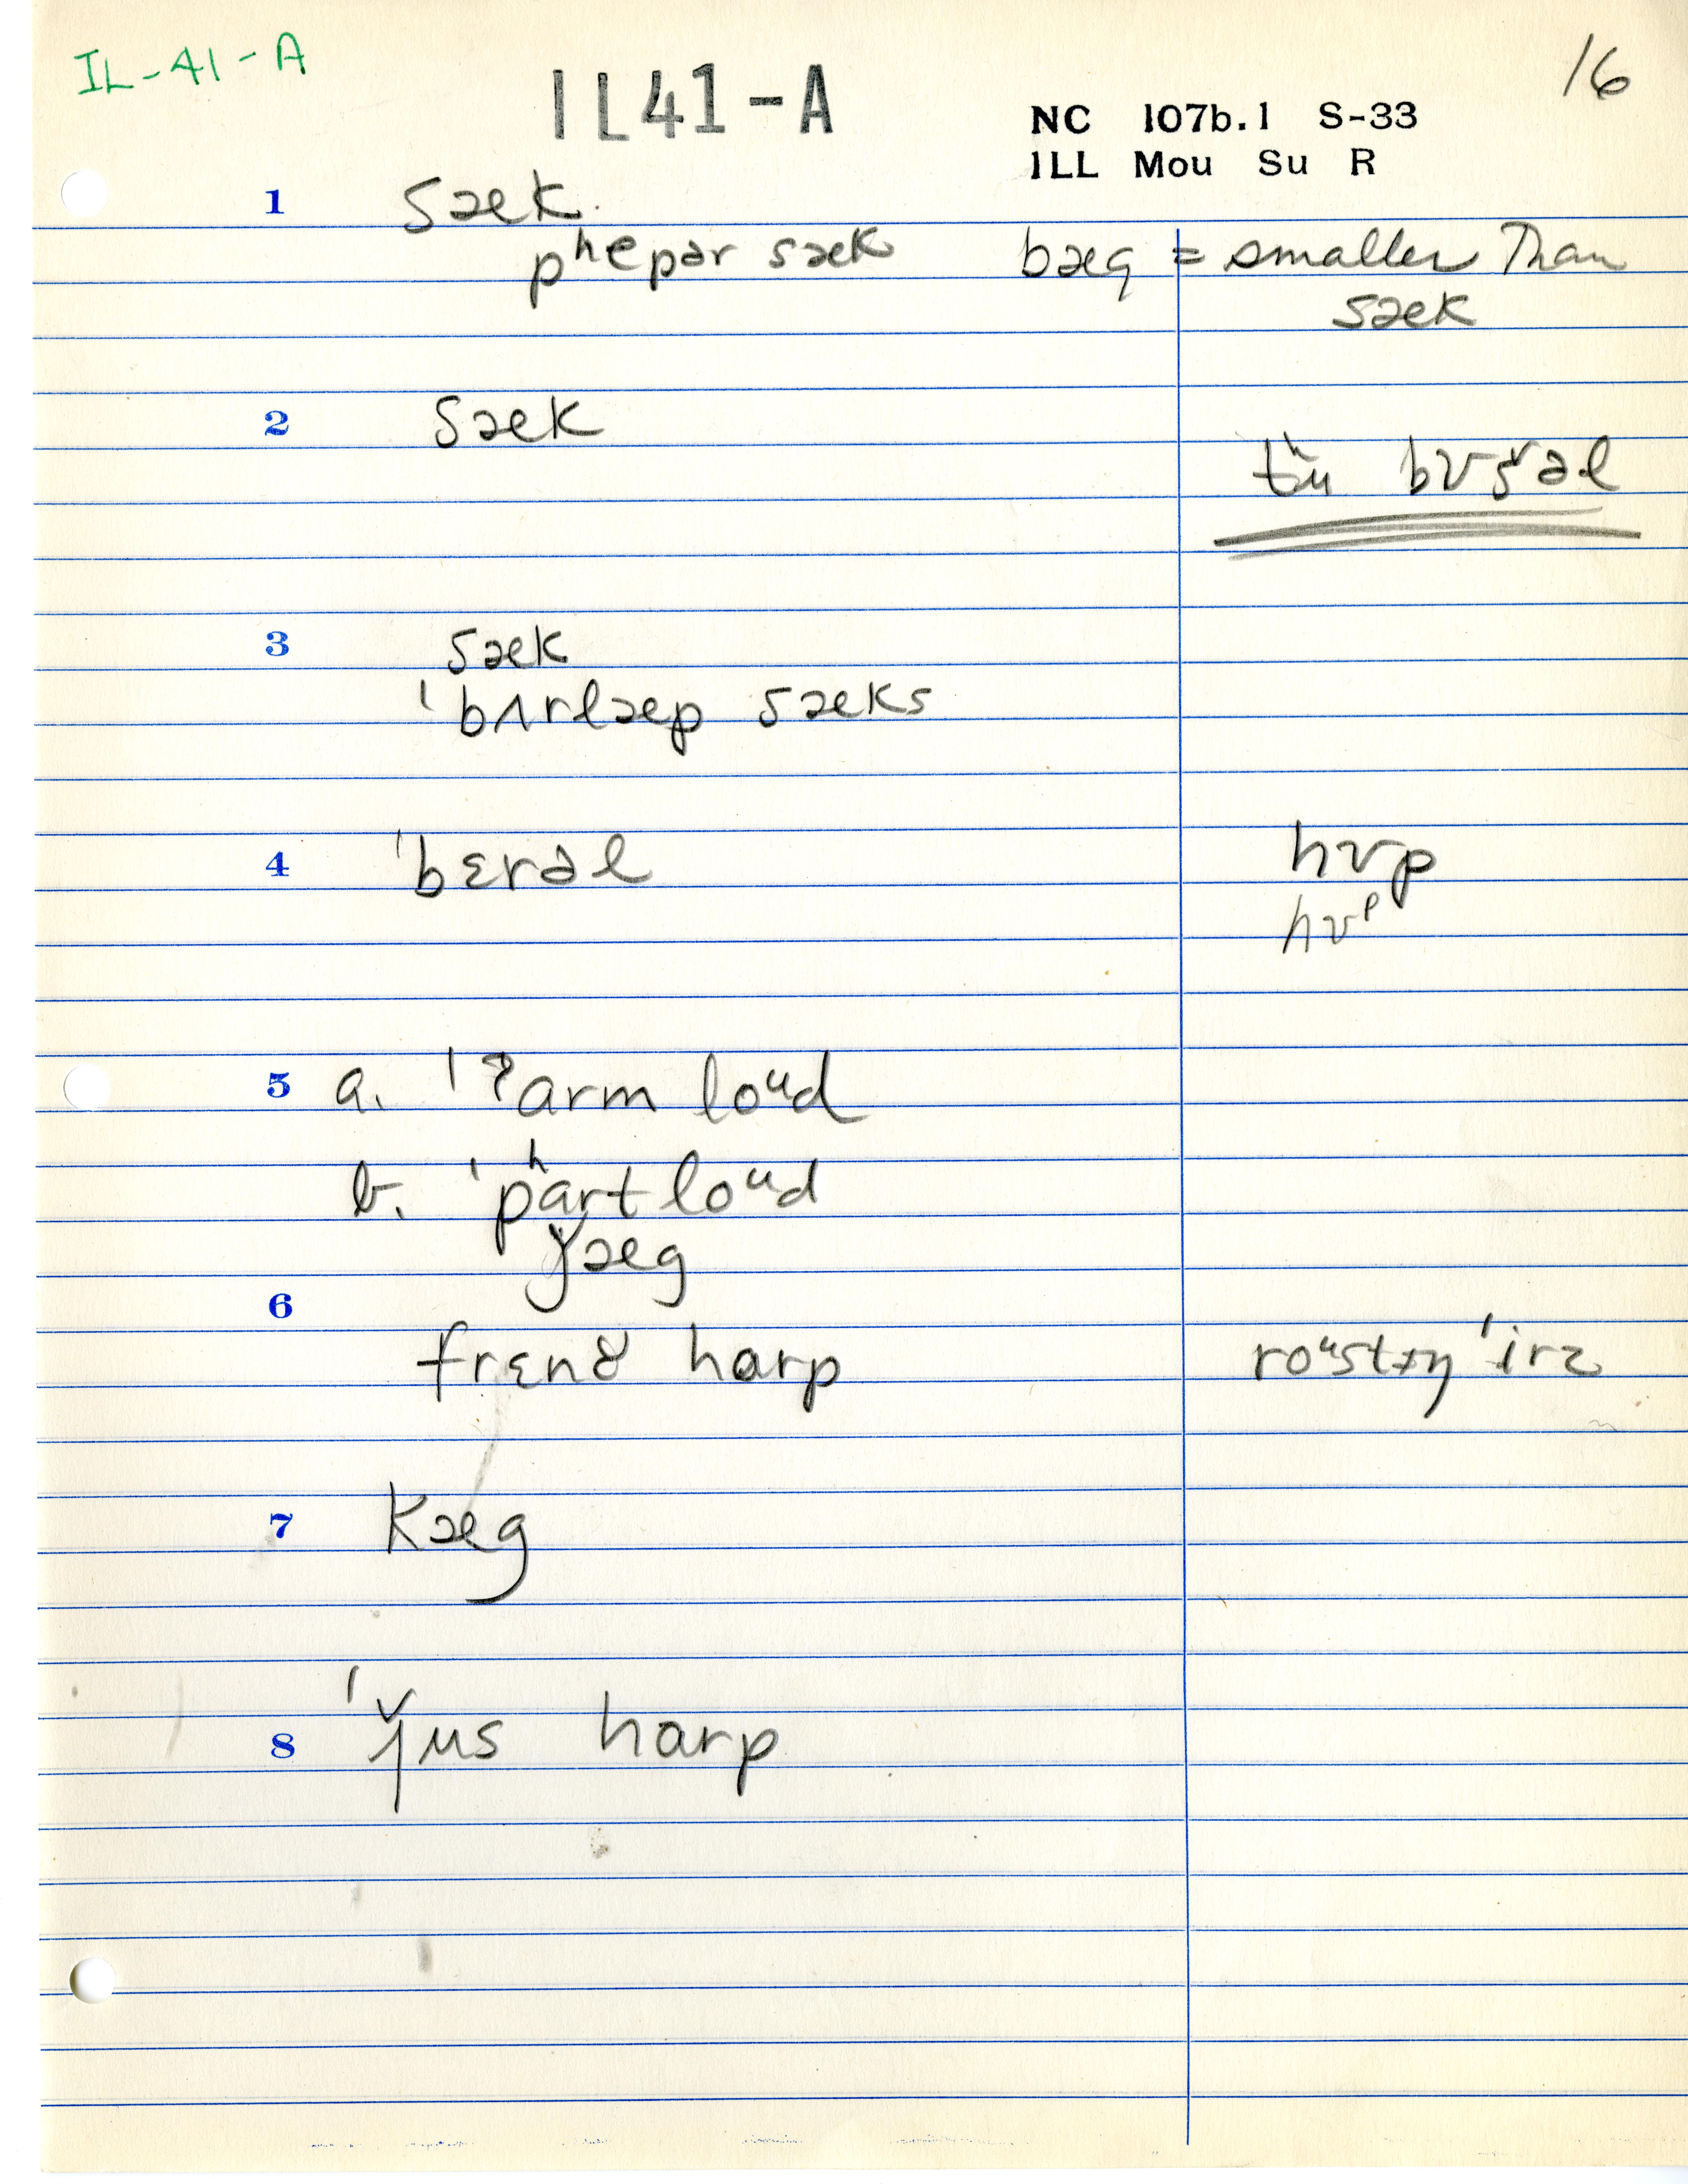 IL-41-A
IL41-A
16
NC 107b.1 S-33
ILL Mou Su R
1 sæk
pʰepər sæk bæg = smaller Than
sæk
2 sæk
tʉu bʊšəl
3 sæk
ˈbʌrlæp sæks
4 ˈbɛrəl hʊp
hʊp
5 a. ˈʔarm loᵘd
b. ˈpʰart loᵘd
ǰæg
6
frɛnč harp roᵘstɪŋ ˈirz
7 kæg
8 ˈǰus harp